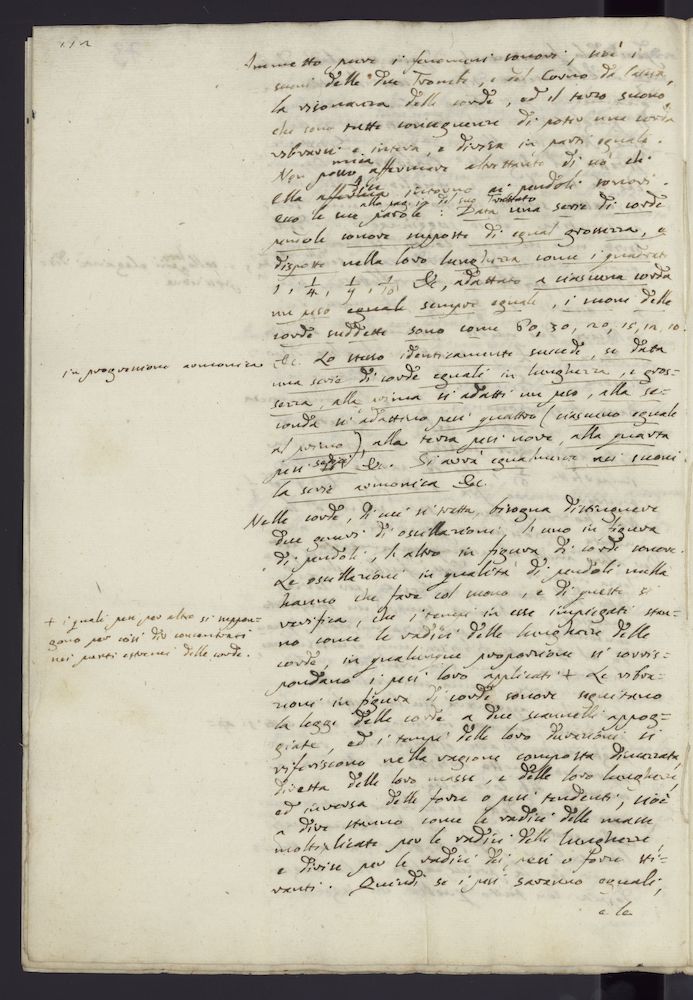 Immetto pure i fenomeni sonori, cioè i
suoni delle due Trombe, e del Corno da caccia,
la risonanza delle corde, ed il terzo suono,
che sono tutte conseguenze di poter una corda
vibrarsi e intera, e divisa in parti eguali.
Non posso affermare altrettanto di ciò che
mica
Ella afferma intorno ai pendoli sonori.
alla pag. in del suo Trattato
ecco le sue parole: Data una serie di corde
pendole sonore supposte di egual grossezza, e
disposte nella loro lunghezza come i quadrati
1, 1/4, 1/9, 1/16 &c, adattato a ciascuna corda
un peso eguale sempre eguale, i suoni delle
corde suddette sono come 60, 30, 20, 15, 12, 10.
in progressione armonica
&c. Lo stesso identicamente succede, se data
una serie di corde eguali in lunghezza, e gros=
sezza, alla prima si adatti un peso, alla se=
conda si adattino pesi quattro (ciascuno eguale
al primo), alla terza pesi nove, alla quarta
pesi sedici &c. Si avrà egualmente nei suoni
la serie armonica &c.
Nelle corde, di cui si tratta, bisogna distinguere
due generi di oscillazioni, l'uno in figura
di pendoli, l'altro in figura di corde sonore.
Le oscillazioni in qualità di pendoli nulla
hanno che fare col suono, e di queste si
verifica, che i tempi in esse impiegati stan=
no come le radici delle lunghezze delle
corde, in qualunque proporzione si corris=
pondano i pesi loro applicati +. Le vibra=
+ i quali pesi per altro si suppon=
gono per così dir concentrati
nei punti estremi delle corde.
zioni in figura di corde sonore seguitano
la legge delle corde a due scannelli appog=
giate, ed i tempi delle loro durazioni si
riferiscono nella ragione composta dimezzata
diretta delle loro masse, e delle loro lunghezze,
ed inversa delle forze o pesi tendenti, cioè
a dire stanno come le radici delle masse
moltiplicate per le radici delle lunghezze,
e divise per le radici dei pesi o forze sti=
ranti. Quindi se i pesi saranno eguali,
e le